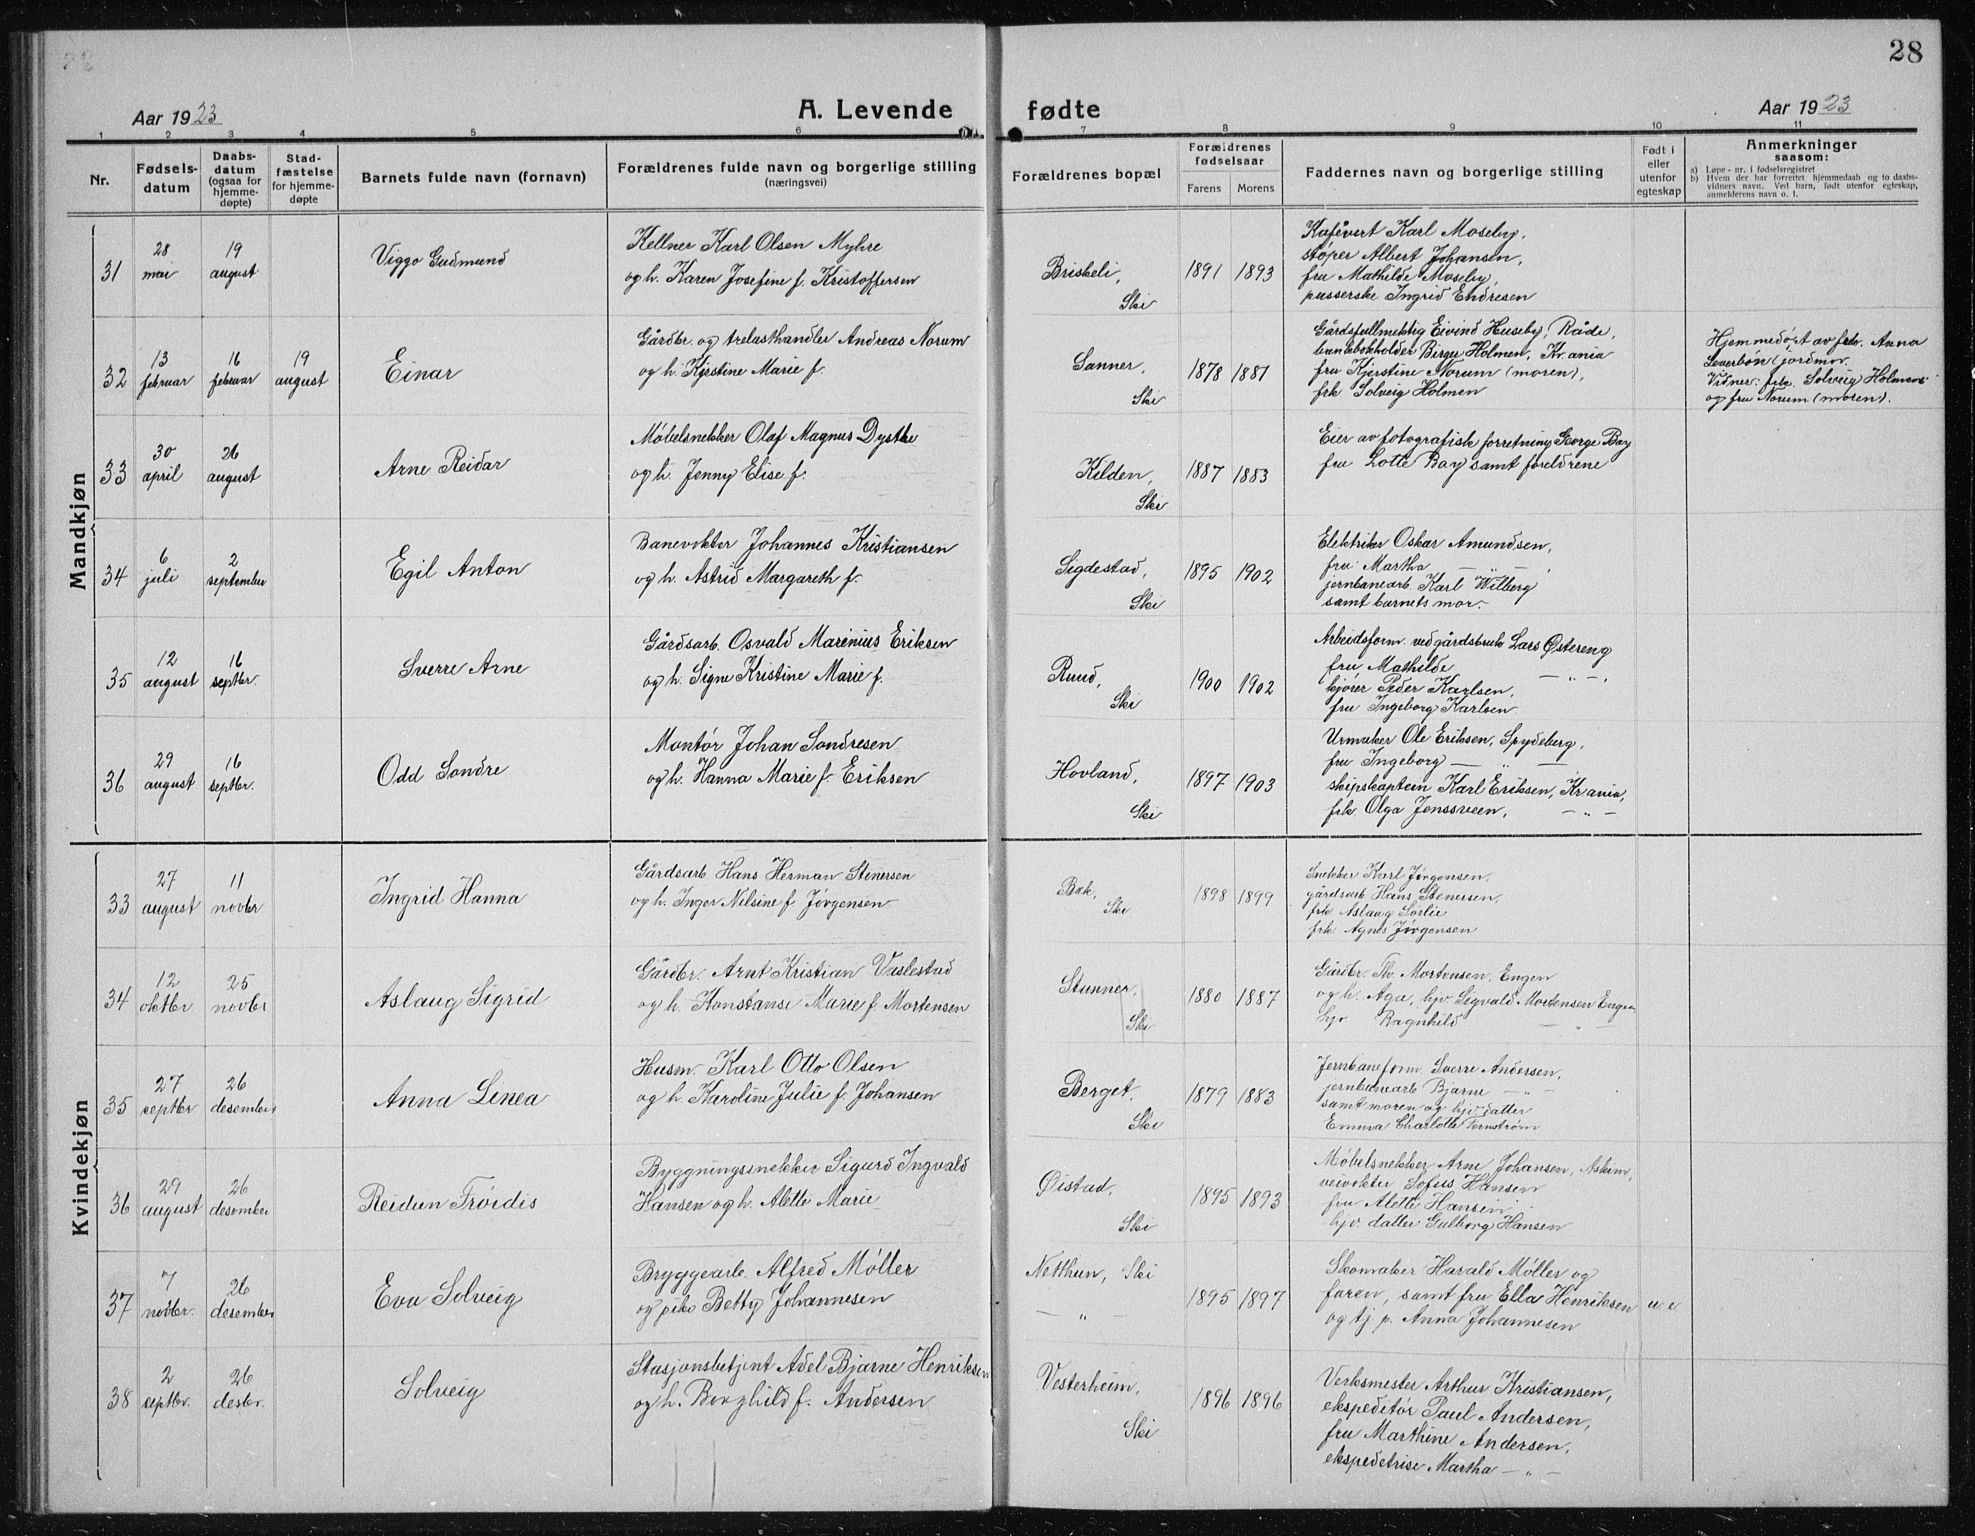 28
Aar 1923 A. Levende fødte Aar 1923
1 2 3 4 5 6 7 8 9 10 11
Nr.
Fødsels-
datum
Daabs-
datum
(ogsaa for
hjemme-
døpte)
Stad-
fæstelse
for hjemme-
døpte
Barnets fulde navn (fornavn)
Forældrenes fulde navn og borgerlige stilling
(næringsvei)
Forældrenes bopæl
Forældrenes
fødselsaar
Farens Morens
Faddernes navn og borgerlige stilling
Født i
eller
utenfor
egteskap
Anmerkninger
saasom:
a) Løpe-nr. i fødselsregistret
b) Hvem der har forrettet hjemmedaab og to daabs-
vidners navn. Ved barn, født utenfor egteskap,
anmelderens navn o. l.
Mandkjøn
31
28
mai
19
august
Viggo Gudmund
Kellner Karl Olsen Myhre
og h. Karen Josefine f. Kristoffersen
Briskeli,
Ski
1891 1893
Kafévert Karl Moseby,
støper Albert Johansen,
fru Mathilde Moseby,
pusserske Ingrid Endresen
32
13
februar
16
februar
19
august
Einar
Gårdbr. og trelasthandler Andreas Norum
og h. Kjerstine Marie f.
Sanner,
Ski
1878 1881
Gårdsfullmektig Eivind Huseby, Råde,
bankbokholder Birger Holmen, Kr.ania
fru Kjerstine Norum (moren),
frk Solveig Holmen
Hjemmedøpt av frk. Anna
jordmor.
Vidner: frk. Solveig Holmen
og fru Norum (moren).
33
30
april
26
august
Arne Reidar
Møbelsnekker Olaf Magnus Dystke
og h. Jenny Elise f.
Kilden,
Ski
1887 1883
Eier av fotografisk forretning George Bay
fru Lotte Bay samt foreldrene
34
6
juli
2
september
Egil Anton
Banevokter Johannes Kristiansen
og h. Astrid Margareth f.
Sigdestad,
Ski
1895 1902
Elektriker Oskar Amundsen,
fru Martha — " —,
jernbanearb. Karl Wilberg
samt barnets mor.
35
12
august
16
septbr.
Sverre Arne
Gårdsarb. Osvald Marinius Eriksen
og h. Signe Kristine Marie f.
Ruud,
Ski
1900 1902
Arbeidsform. ved gårdsbruk Lars Østereng
fru Mathilde — " —,
kjører Peder Karlsen,
fru Ingeborg Karlsen
36
29
august
16
septbr.
Odd Sondre
Montør Johan Sondresen
og h. Hanna Marie f. Eriksen
Hovland,
Ski
1897 1903
Urmaker Ole Eriksen, Spydeberg,
fru Ingeborg — " —
skipskaptein Karl Eriksen, Kr.ania,
frk. Olga Jenssveen, — " —
Kvindekjøn
33
27
august
11
novbr
Ingrid Hanna
Gårdsarb Hans Herman Stenersen
og h. Inger Nilsine f. Jørgensen
Bøk,
Ski
1898 1899
Snekker Karl Jørgensen,
gårdsarb Hans Stenersen,
frk Aslaug Sørlie
frk Agnes Jørgensen
34
12
oktbr
25
novbr
Aslaug Sigrid
Gårdbr. Arnt Kristian Vaslestad
og h. Konstanse Marie f. Mortensen
Stunner,
Ski
1880 1887
Gårdbr. Th. Mortensen, Engen
og h. Aga, hjv Sigvald Mortensen Engen
hjv Ragnhild — " —
35
27
septbr
26
desember
Anna Linea
Husm. Karl Otto Olsen
og h. Karoline Julie f. Johansen
Berget,
Ski
1879 1883
Jernbaneform Sverre Andersen,
jernbanearb Bjarne — " —
samt moren og hjv datter
Emma Charlotte Fernstrøm
36
29
august
26
desember
Reidun Frøidis
Byggningssnekker Sigurd Ingvald
Hansen og h. Alette Marie
Øistad,
Ski
1895 1893
Møbelsnekker Arne Johansen, Askim,
veivokter Sofus Hansen
fru Alette Hansen
hjv. datter Gulborg Hansen
37
7
novbr.
26
desember
Eva Solveig
Bryggearb. Alfred Møller
og pike Betty Johannesen
Netthun, Ski
— " —
1895 1897
Skomaker Harald Møller og
faren, samt fru Ella Henriksen
og tj. p. Anna Johannesen
u e
38
2
septbr.
26
desbr.
Solveig
Stasjonsbetjent Adel Bjarne Henriksen
og h. Borghild f. Andersen
Vesterheim,
Ski
1896 1896
Verksmester Arthur Kristiansen,
ekspeditør Paul Andersen,
fru Marthine Andersen,
ekspeditrise Martha — " —